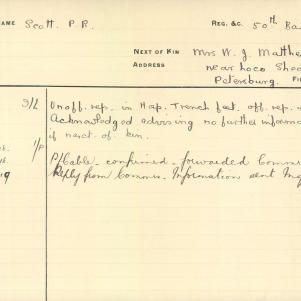 NAME Scott. P.R. REG. &C. 50th Ba
NEXT OF KIN Mrs W. J. Matthe
ADDRESS near Loco Shed
Petersburg.
3/L Unoff. rep. in Hop. Trench feet. off. rep.
Acknowledged advising no further informa
if next. of kin.
1/P P/Cable. confirmed. forwarded Commis
Reply from Commis. Information sent Inq